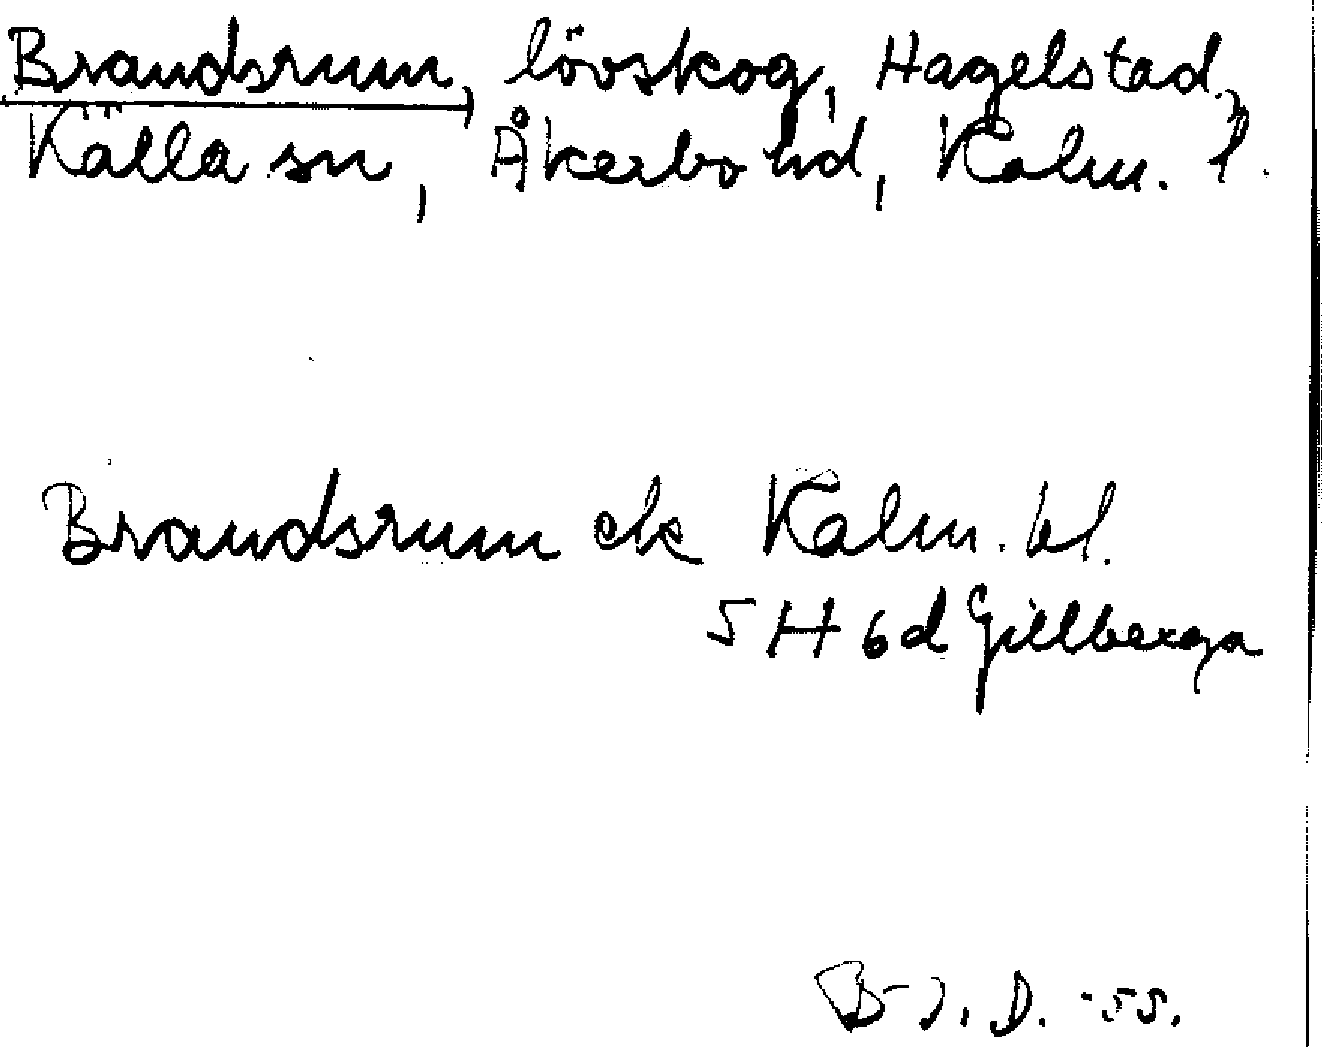 Brandsrum, lövskog, Hagelstad,
Källa sn, Åkerbo hd, Kalm. l.
Brandsrum ek Kalm. bl.
5 H 6d Gillberga
B-J. D. -55.